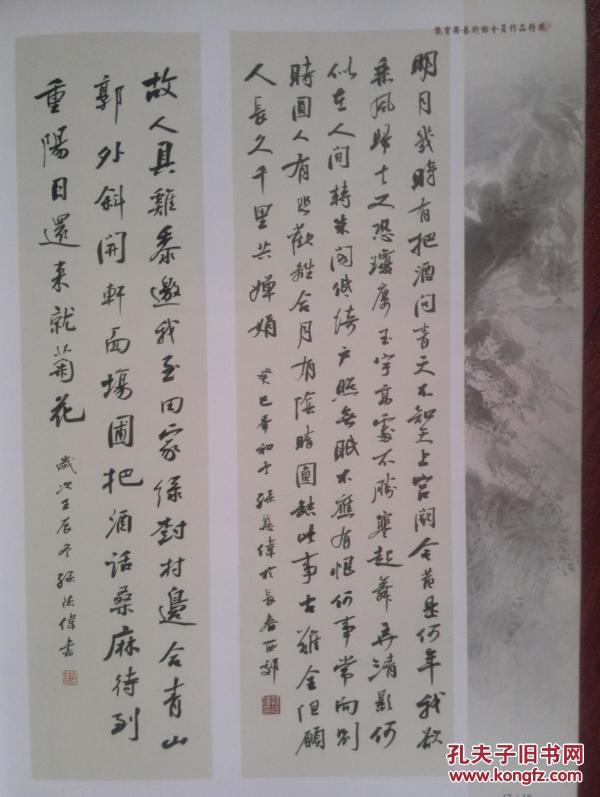 藝術館會員作品精選
明月幾時有把酒問青天不知天上宮闕今昔是何年我欲
乘風歸去又恐瓊廔玉宇高處不勝寒起舞弄清影何
似在人间轉朱閣低綺户照無眠不應有恨何事常向别
時圓人有悲歡離合月有陰晴圓缺此事古難全但願
人長久千里共嬋娟
癸巳年初冬孫德偉於長春西郊
故人具雞黍邀我至田家绿树村邊合青山
郭外斜開軒面場圃把酒話桑麻待到
重陽日還来就菊花
歲次壬辰冬孫德偉書
孔夫子旧书网
www.kongfz.com